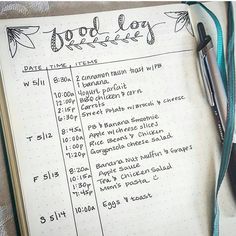 food log
DATE TIME ITEMS
W 5/11 8:30a 2 cinnamon raisin toast w/PB
1 banana
10:00a Yogurt parfait
2:00p BBQ chicken & corn
2:15p Carrots
6:30p Sweet Potato w/Broccoli & Cheese
T 5/12 8:45a PB & Banana Smoothie
10:00a Apple w/cheese slices
1:00p Rice Beans & Chicken
7:20p Gorgonzola cheese Salad
F 5/13 8:20a Banana Nut Muffin & Grapes
10:15a Apple Sauce
1:30p Tea & Chicken Salad
7:45p Mom's Pasta
S 5/14 10:00a Eggs & toast